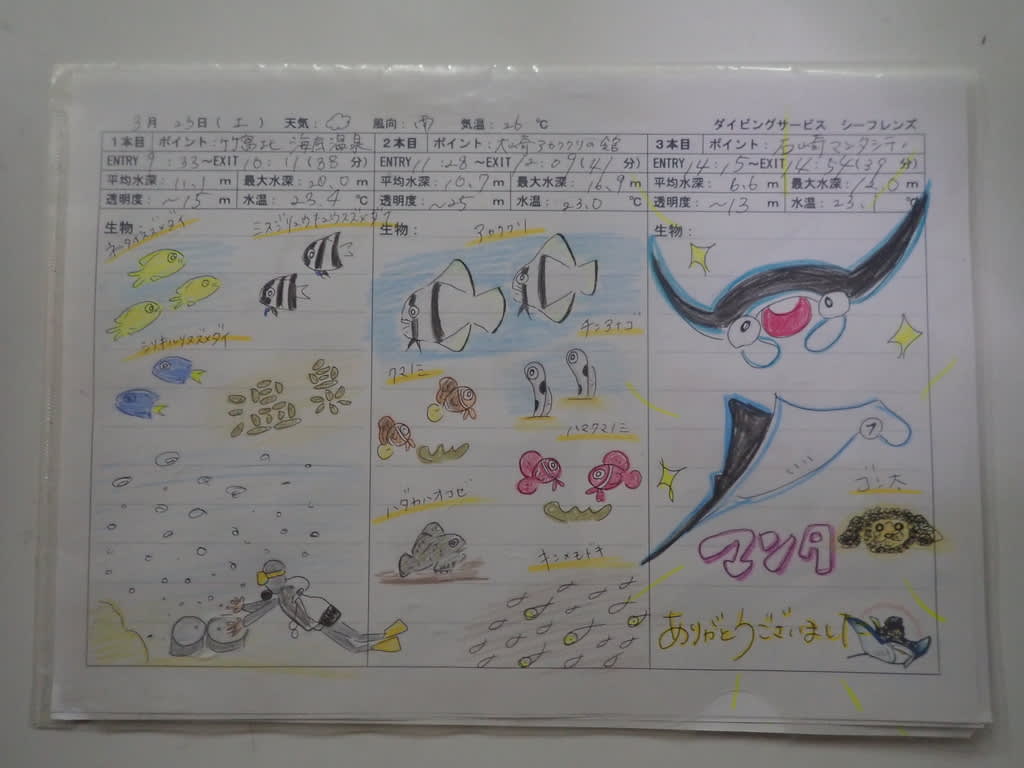 3月 23日(土) 天気: 風向:南 気温:26 ℃ ダイビングサービス シーフレンズ
1本目 ポイント:竹富北 海底温泉 2本目 ポイント:大崎アカククリの館 3本目 ポイント:石崎マンタシティ
ENTRY 9:33~EXIT 10:11(38 分) ENTRY 11:28~EXIT 12:09(41 分) ENTRY 14:15~EXIT 14:54(39 分)
平均水深:11.1 m 最大水深:20.0 m 平均水深:10.7 m 最大水深:16.9 m 平均水深:6.6 m 最大水深:12.0 m
透明度:~15 m 水温:23.4 ℃ 透明度:~25 m 水温:23.0 ℃ 透明度:~13 m 水温:23.1 ℃
生物: 生物: 生物:
ネッタイスズメダイ
ミスジリュウキュウスズメダイ
アカククリ
チンアナゴ
クマノミ
ハマクマノミ
ハダカハオコゼ
キンメモドキ
ゴン太
マンタ
ありがとうございました